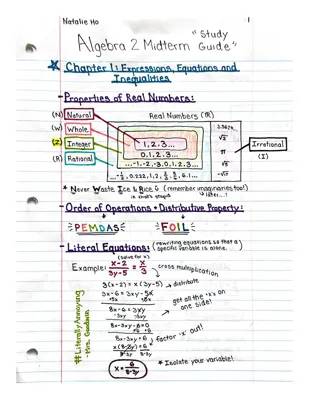 Natalie Ho
1
Algebra 2 Midterm "Study Guide"
Chapter 1: Expressions, Equations and
Inequalities
- Properties of Real Numbers:
Real Numbers (ℝ)
(N) Natural
(W) Whole
(Z) Integer
(R) Rational
1, 2, 3...
0, 1, 2, 3...
...-1, -2, -3, 0, 1, 2, 3...
√2
π
-√3
Irrational
(I)
* Never Waste Ice & Rice (remember imaginaries too!)
in small groups
later...!
- Order of Operations + Distributive Property:
PEMDAS
FOIL
- Literal Equations: (rewriting equations so that a
specific variable is alone.
(solve for x)
Example: x-2/3y-5 = x/3
cross multiplication
3(x-2) = x(3y-5)
distribute
3x-6 = 3xy-5x
+5x +5x
8x-6 = 3xy
-3xy -3xy
get all the "x's" on
one side!
8x-3xy-6=0
+6 +6
8x-3xy=6
factor "x" out!
x(8-3y)=6
8-3y 8-3y
x = 6/8-3y
* Isolate your variable!
#LiterallyAnnoying
- Mrs. Goodwin